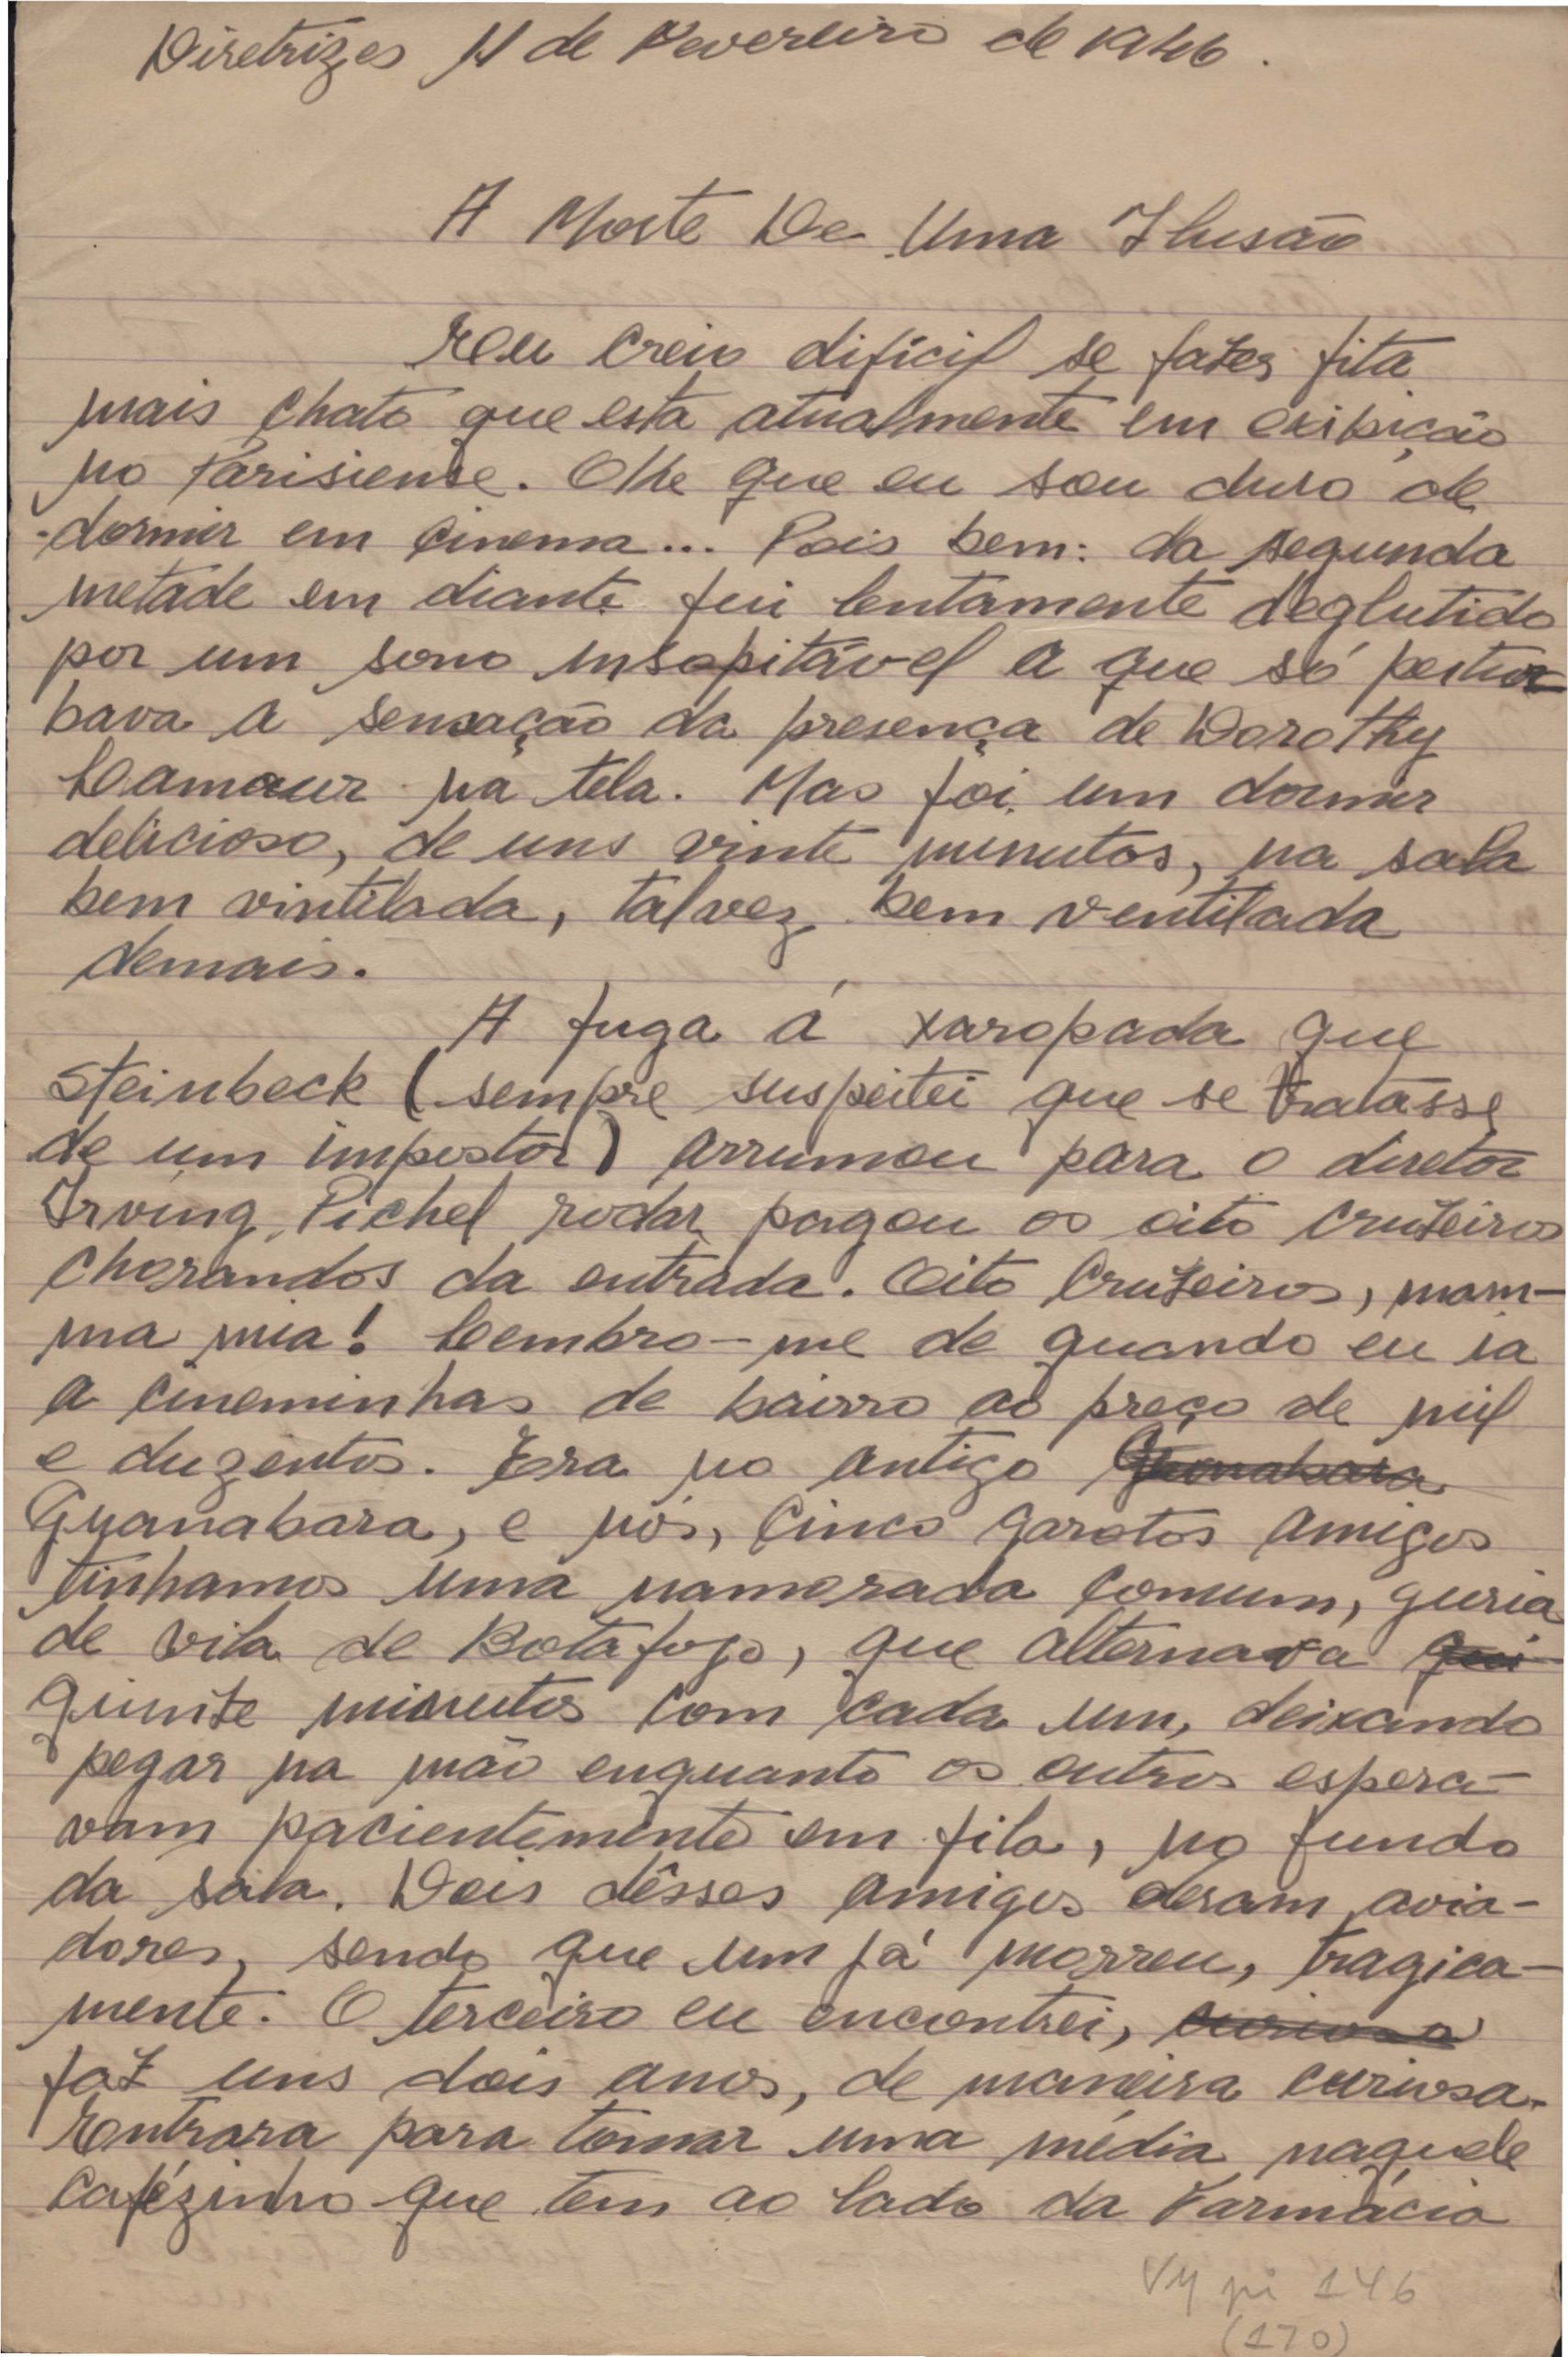 Diretrizes 11 de Fevereiro de 1946.
A Morte De Uma Ilusão
Eu creio difícil se fazer fita
mais chato que esta atualmente em exibição
no Parisiense. Olhe que eu sou duro de
dormir em cinema... Pois bem: da segunda
metade em diante fui lentamente deglutido
por um sono insopitável a que só pertur-
bava a sensação da presença de Dorothy
Lamour na tela. Mas foi um dormir
delicioso, de uns vinte minutos, na sala
bem vintilada, talvez bem ventilada
demais.
A fuga á xaropada que
Steinbeck (sempre suspeitei que se tratasse
de um impostor) arrumou para o diretor
Irving Pichel rodar pagou os oito cruzeiros
chorandos da entrada. Oito Cruzeiros, mam-
ma mia! Lembro-me de quando eu ia
a cineminhas de bairro ao preço de mil
e duzentos. Era no antigo Guanabara
Guanabara, e nós, cinco garotos amigos
tinhamos uma namorada comum, guria
de vila de Botafogo, que alternava qui-
quinze minutos com cada um, deixando
pegar na mão enquanto os outros espera-
vam pacientemente em fila, no fundo
da sala. Dois dêsses amigos deram avia-
dores, sendo que um já morreu, tragica-
mente. O terceiro eu encontrei, curiosa
faz uns dois anos, de maneira curiosa.
Entrara para tomar uma média naquele
cafézinho que tem ao lado da Farmácia
VM pi 146
(170)